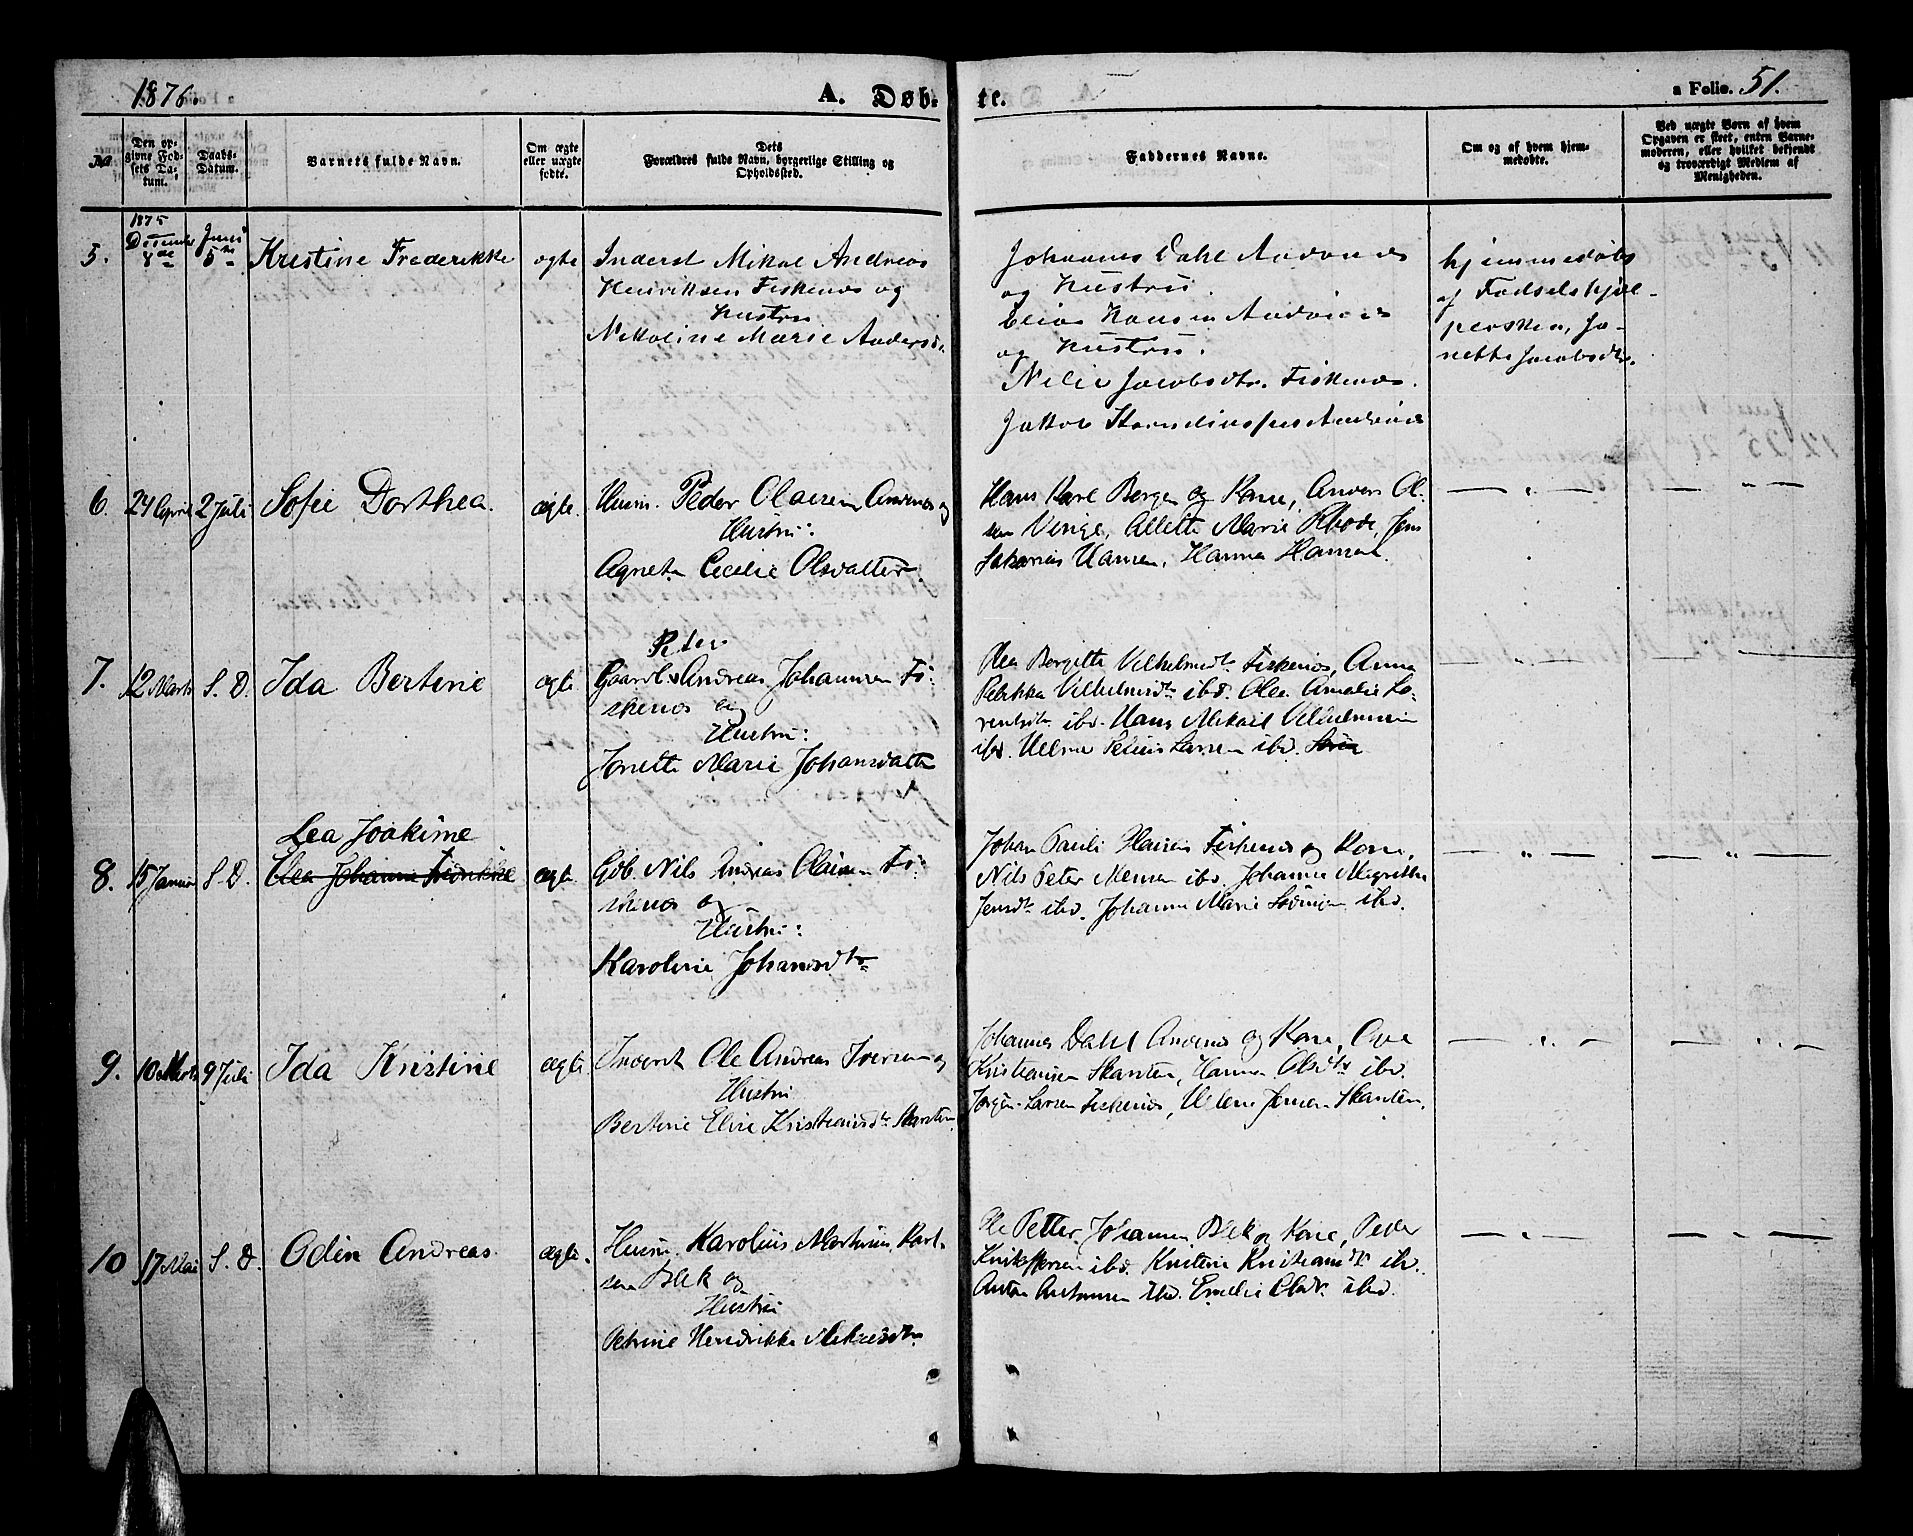 1876.
A. Døb-
te.
a Folio. 51.
No.
Den op-
givne Fød-
sels Da-
tum.
Daabs-
Datum.
Barnets fulde Navn.
Om ægte
eller uægte
fødte.
Dets
Forældres fulde Navn, borgerlige Stilling og
Opholdssted.
Faddernes Navne.
Om og af hvem hjem-
medøbte.
Ved uægte Børn af hvem
Opgaven er skeet, enten Barne-
moderen, eller hvilket bekjendt
og troværdigt Medlem af
Menigheden.
1875
5. December 8de Juni 5te Kristine Frederikke ægte Inderst Mikal Andreas
Henriksen Fiskenes og
Hustru
Nikoline Marie Andersd.
Johannes Dahl Andenes
og Hustru.
Elias Hansen Andenes
og Hustru.
Jacobsdtr. Fiskenes.
Jakob Andenes
hjemmedøbt
af Fødselshjæl-
persken, Ja-
nette Jacobsdtr.
6. 24 April 2 Juli Sofie Dorthea. ægte. Husm. Peder Olaisen Andenes og
Hustru:
Agneta Cecilie Olsdatter.
Hans Karl Berger og Kone, Anders Ol-
sen Allette Marie Rhode, Jens
Sakarias Hansen, Hanna Hansen.
— " — — " —
Peter
7. 12 Marts S. D. Ida Bertine ægte Gaardb. Andreas Johannsen Fi-
skenes og
Hustru:
Jonette Marie Johansdatter
Olea Bergitte Vilhelmsdtr Fiskenes, Anna
Vilhelmsdtr ibd. Olea Amalie Lo-
rentsdtr ibd. Hans Mikael Vilhelmsen
ibd. Larsen ibd.
— " —
Lea Joakime
8. 15 Januar S. D. Elea Johanna Fredrikke ægte Gbb. Nils Andreas Olaisen Fi-
skenes og
Hustru:
Karoline Johansdtr
Johan Pauli Fiskenes og Kone,
Nils Peter ibd. Johanna
Jensdtr ibd. Johanna Marie ibd.
— " — — " —
9. 10 Marts 9 Juli Ida Kristine ægte Inderst Ole Andreas Iversen og
Hustru
Bertine Elise Kristiansdtr Skarsten
Johannes Dahl Andenes og Kone, Ove
Kristiansen Skarsten, Hanna Olsdtr ibd.
Jørgen Larsen Fiskenes, Jensen Skarsten.
— " — — " —
10 17 Mai S. D. Odin Andreas. ægte. Husm. Karolius Martinus Karl-
sen Blek og
Hustru
Petrine Hendrikke Mikalsdtr
Ole Petter Johannsen Blek og Kone, Peder
Kristoffersen ibd. Kristine Kristiansdtr ibd.
Anton Antonsen ibd. Emelie Olsdr. ibd.
— " — — " —